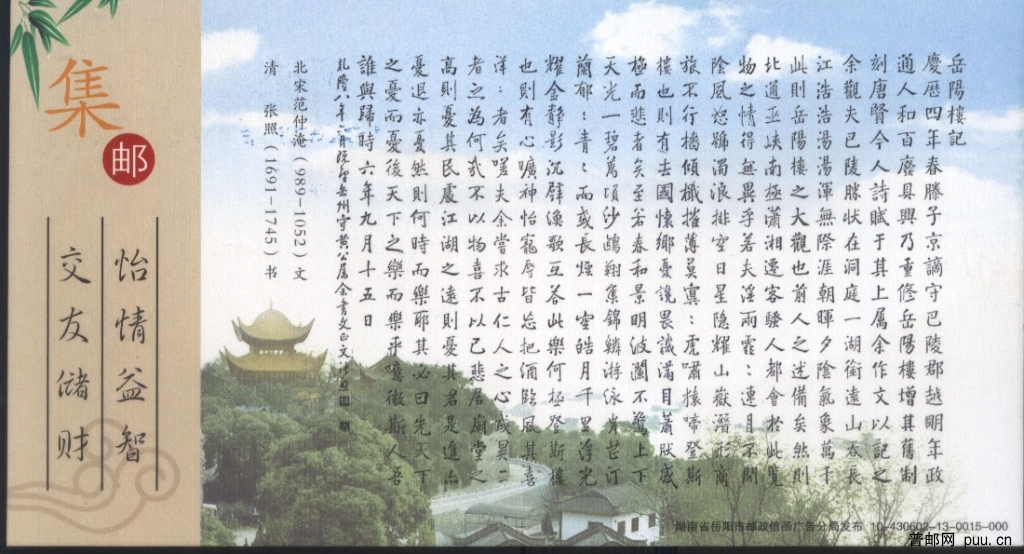 岳陽樓記
慶曆四年春滕子京謫守巴陵郡越明年政
通人和百廢具興乃重修岳陽樓增其舊制
刻唐賢今人詩賦于其上属余作文以記之
余觀夫巴陵勝狀在洞庭一湖銜遠山吞長
江浩浩湯湯渾無際涯朝暉夕陰氣象萬千
此則岳陽樓之大觀也前人之述備矣然則
北通巫峽南極瀟湘遷客騷人都會於此覽
物之情得無異乎若夫淫雨霏:連月不開
陰風怒號濁浪排空日星隱耀山嶽潛形商
旅不行檣傾檝摧薄莫冥:虎嘯猿啼登斯
樓也則有去國懷鄉憂讒畏譏滿目蕭然感
極而悲者矣至若春和景明波瀾不驚上下
天光一碧萬頃沙鷗翔集錦鱗游泳岸芷汀
蘭郁:青:而或長煙一空皓月千里浮光
耀金靜影沉璧漁歌互答此樂何極登斯樓
也則有心曠神怡寵辱皆忘把酒臨風其喜
洋:者矣嗟夫余嘗求古仁人之心或異二
者之為何哉不以物喜不以己悲居廟堂之
高則憂其民處江湖之遠則憂其君是進亦
憂退亦憂然則何時而樂耶其必曰先天下
之憂而憂後天下之樂而樂乎噫微斯人吾
誰與歸時六年九月十五日
乾隆八年六月既望岳州守黃公属余書文正文
北宋范仲淹（989-1052）文
清 张照（1691-1745）书
集邮
怡情益智
交友储财
湖南省岳阳市邮政信函广告分局发布 10-430602-13-0015-000
普邮网 puu.cn